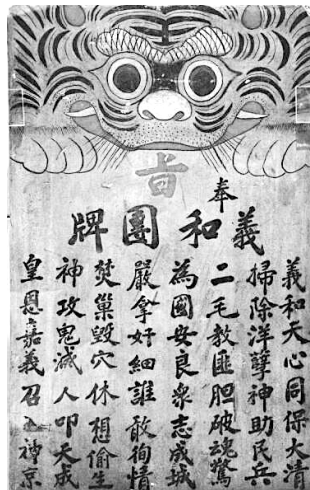 奉
旨
義和團牌
義和天心同保大清
掃除洋孽神助民兵
二毛教匪胆破魂驚
為國安良衆志成城
嚴拿奸細誰敢徇情
焚巢毀穴休想偷生
神攻鬼滅人叩天成
皇恩嘉義召上神京